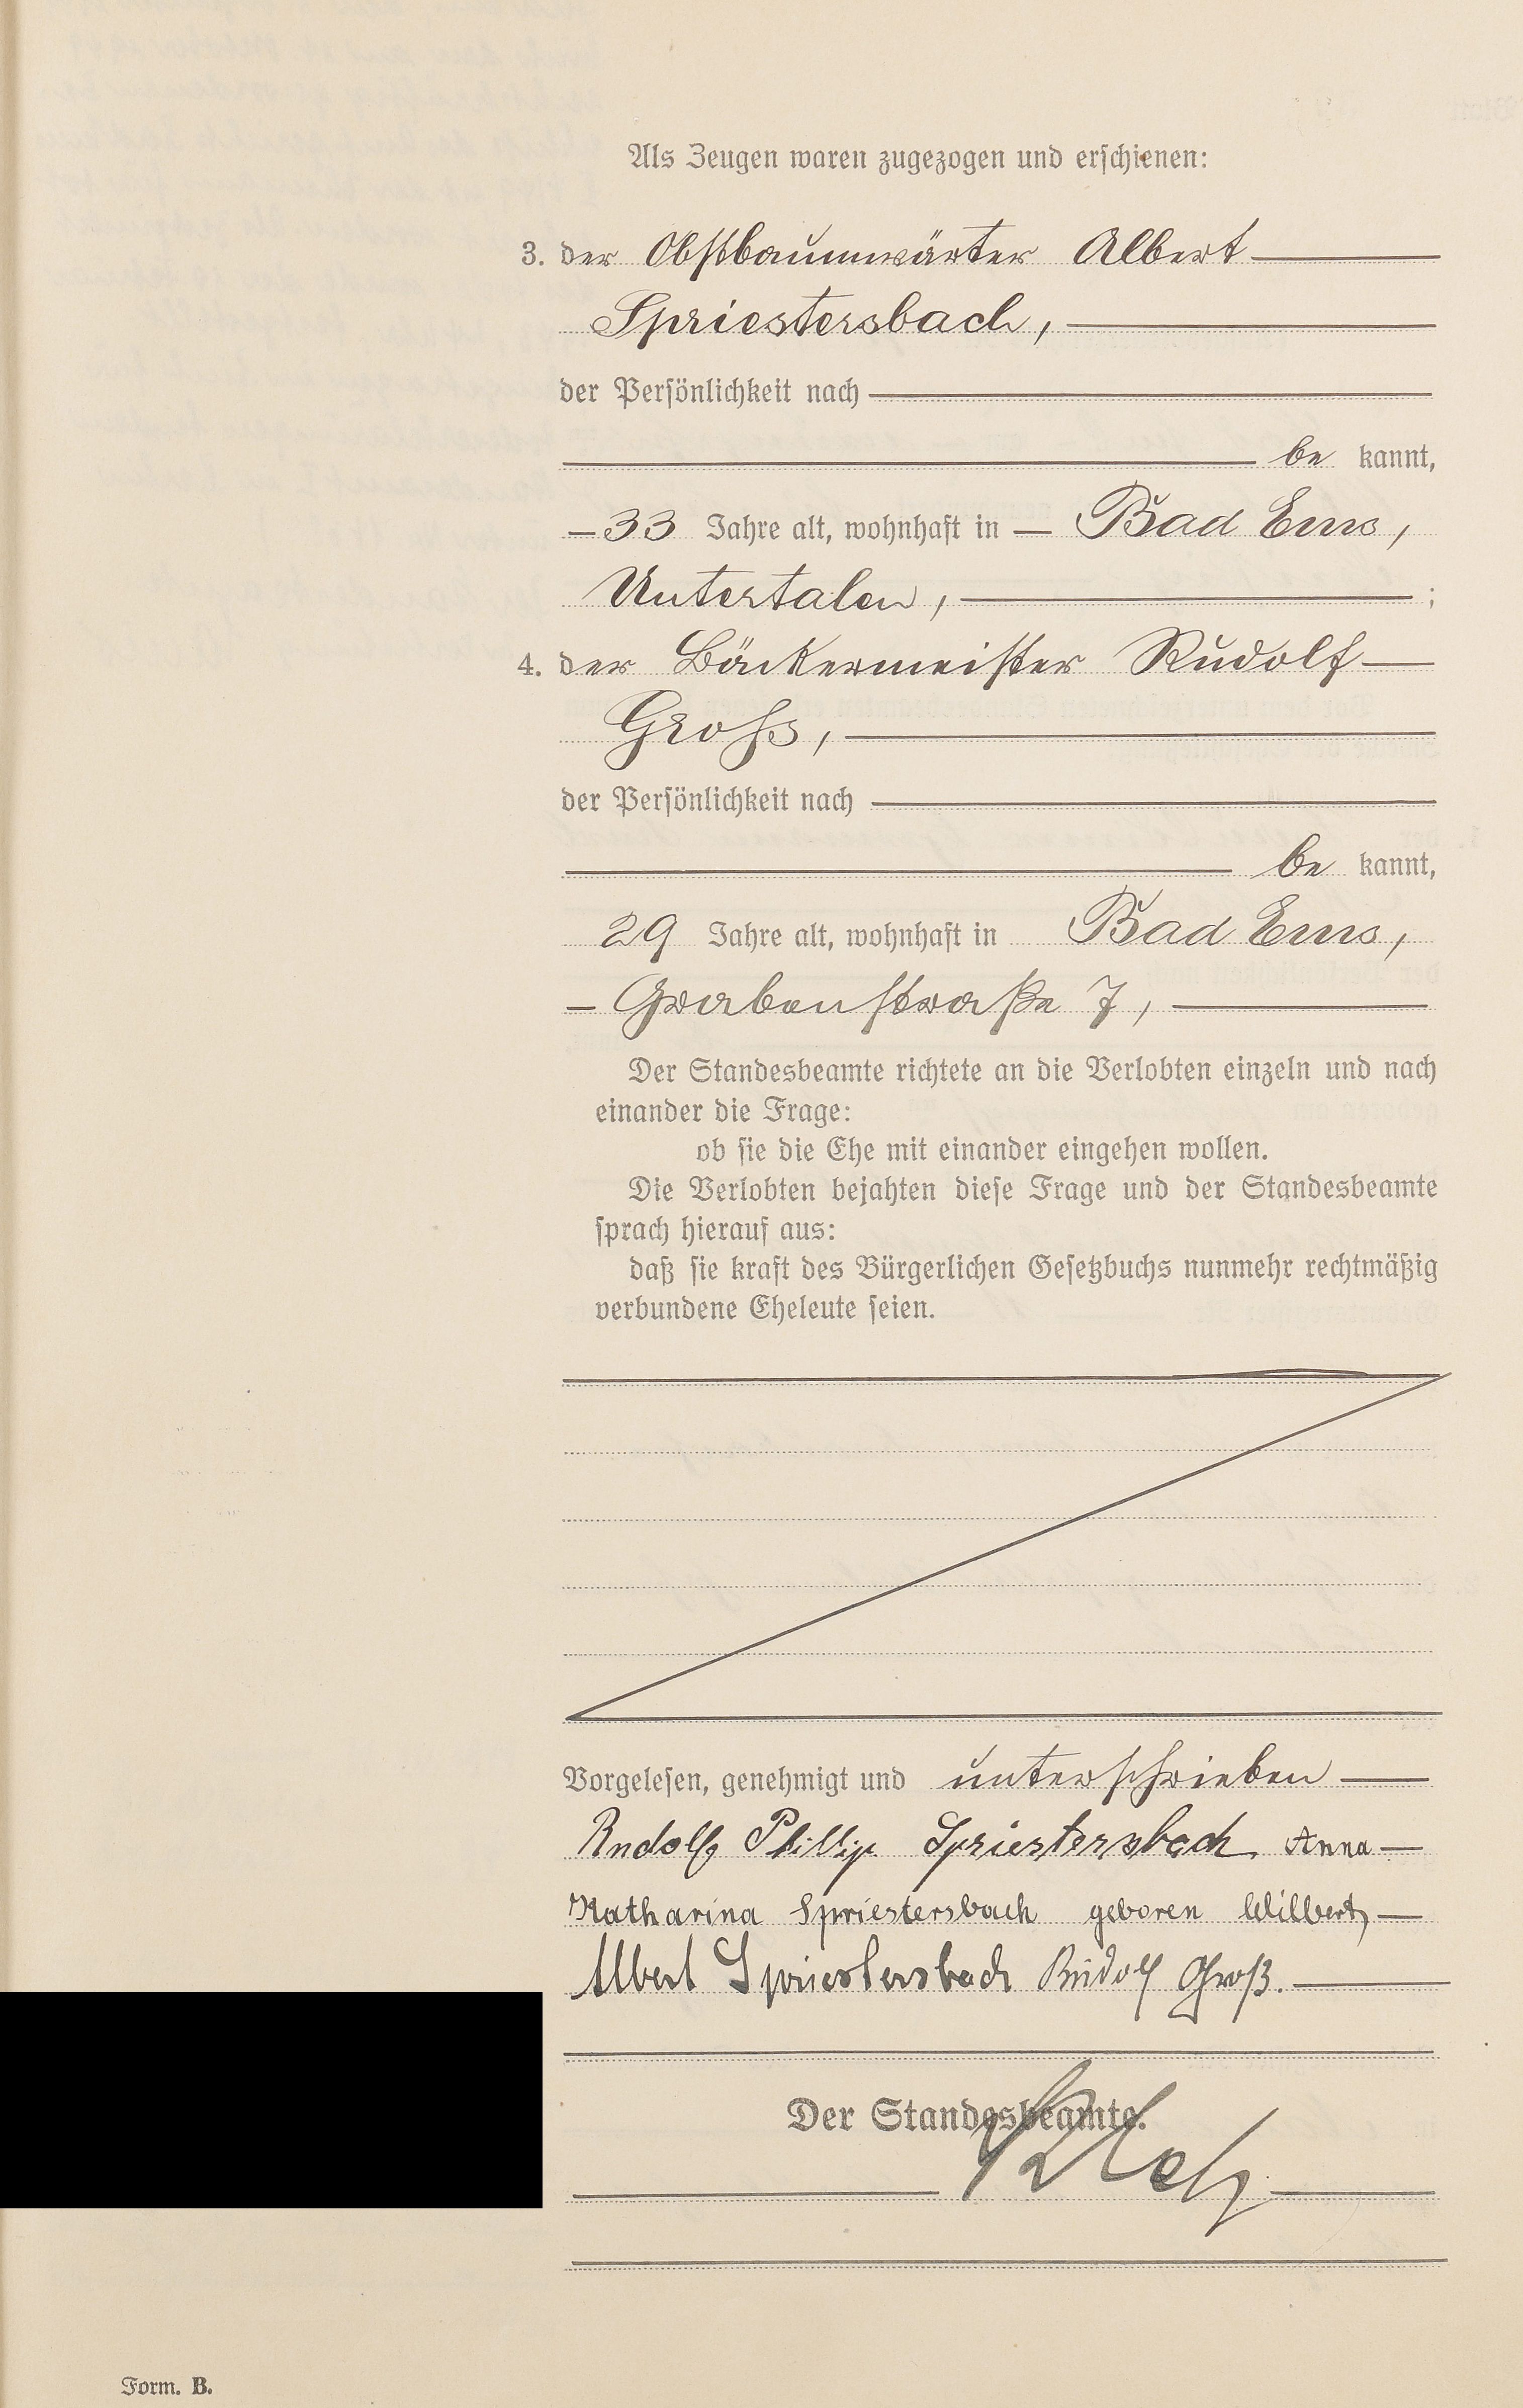 Als Zeugen waren zugezogen und erschienen:
3. der Obstbaumwärter Albert
Spriestersbach,
der Persönlichkeit nach
be kannt,
33 Jahre alt, wohnhaft in Bad Ems,
Untertalen, ;
4. der Bäckermeister Rudolf
Groß,
der Persönlichkeit nach
be kannt,
29 Jahre alt, wohnhaft in Bad Ems,
Grabenstraße 7,
Der Standesbeamte richtete an die Verlobten einzeln und nach
einander die Frage:
ob sie die Ehe mit einander eingehen wollen.
Die Verlobten bejahten diese Frage und der Standesbeamte
sprach hierauf aus:
daß sie kraft des Bürgerlichen Gesetzbuchs nunmehr rechtmäßig
verbundene Eheleute seien.
Vorgelesen, genehmigt und unterschrieben
Rudolf Phillip Spriestersbach Anna
Katharina Spriestersbach geboren Wilbert,
Albert Spriestersbach Rudolf Groß.
Der Standesbeamte.
Form. B.